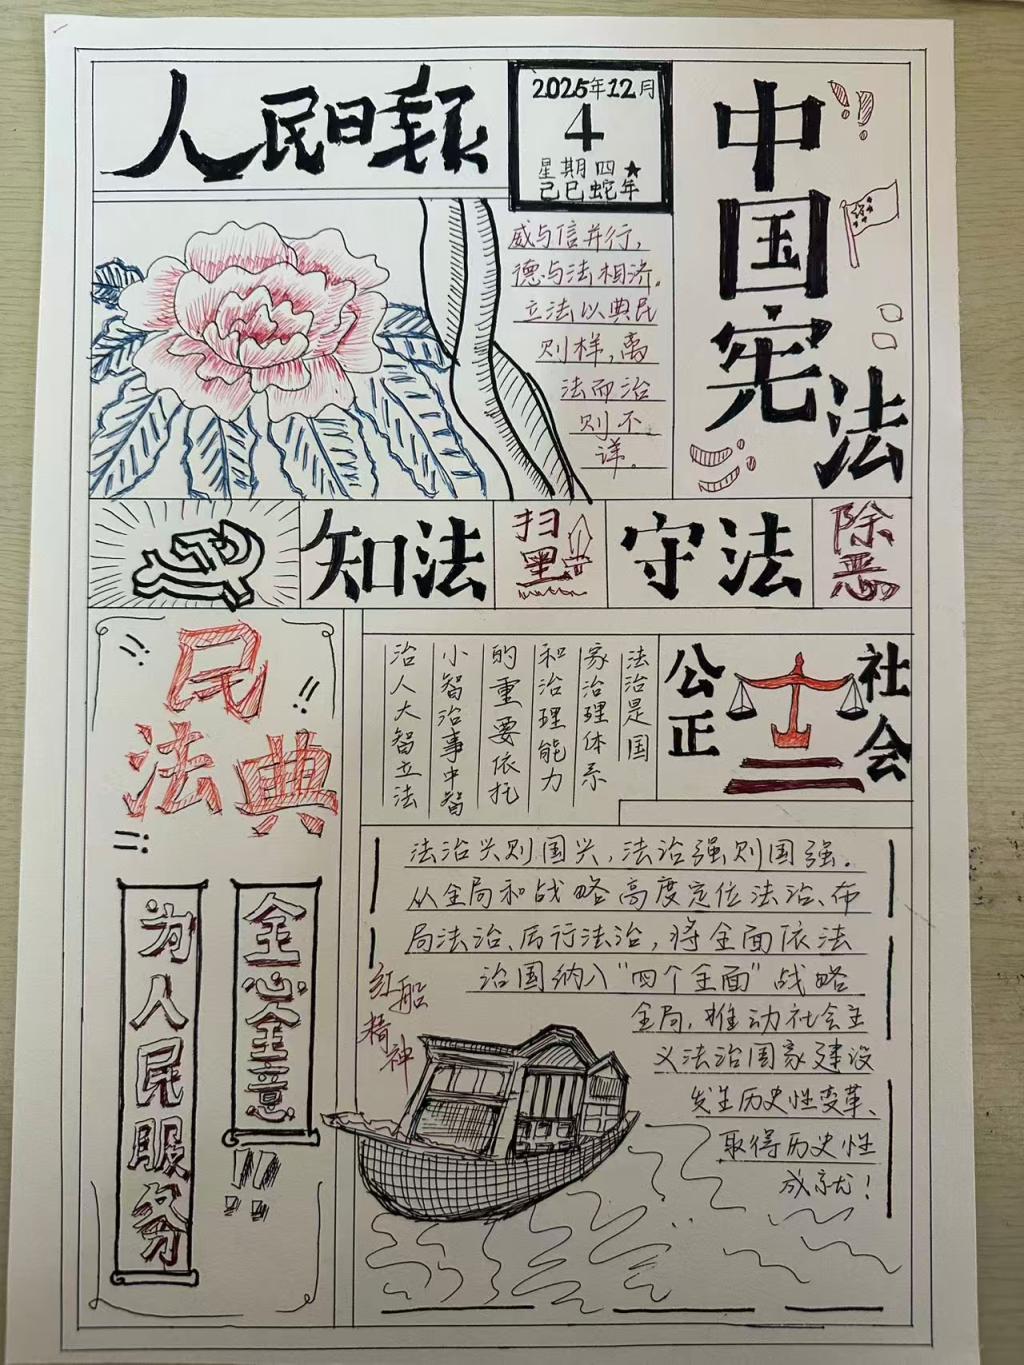 人民日报
2025年12月
4
星期四★
己巳蛇年
中国宪法
威与信并行，
德与法相济。
立法以典民
则样，离
法而治
则不
详。
知法
扫
黑
守法
除
恶
民
法典
全心全意
为人民服务
法治是国
家治理体系
和治理能力
的重要依托
小智治事中智
治人大智立法
公正
社会
法治兴则国兴，法治强则国强。
从全局和战略高度定位法治、布
局法治、厉行法治，将全面依法
治国纳入“四个全面”战略
全局，推动社会主
义法治国家建设
发生历史性变革、
取得历史性
成就！
红船
精神